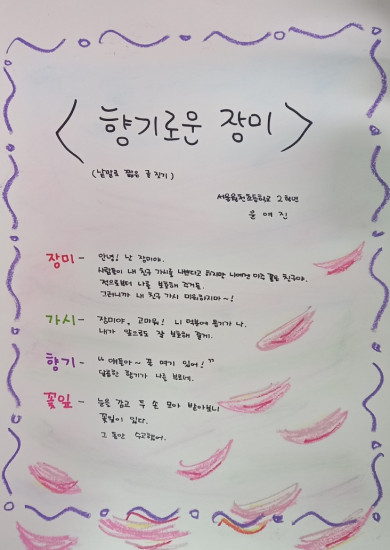 < 향기로운 장미 >
(낱말로 짧은 글 짓기)
초등학교 2학년
윤예진
장미 - 안녕! 난 장미야.
사람들이 내 친구 가시를 나쁘다고 하지만 나에겐 아주 좋은 친구야.
적으로부터 나를 보호해 주거든.
그러니까 내 친구 가시 미워하지마~!
가시 - 장미야, 고마워! 니 덕분에 용기가 나.
내가 앞으로도 잘 보호해 줄게.
향기 - "얘들아~ 꽃 여기 있어!"
달콤한 향기가 나를 부르네.
꽃잎 - 눈을 감고 두 손 모아 받아보니
꽃잎이 있다.
그 동안 수고했어.